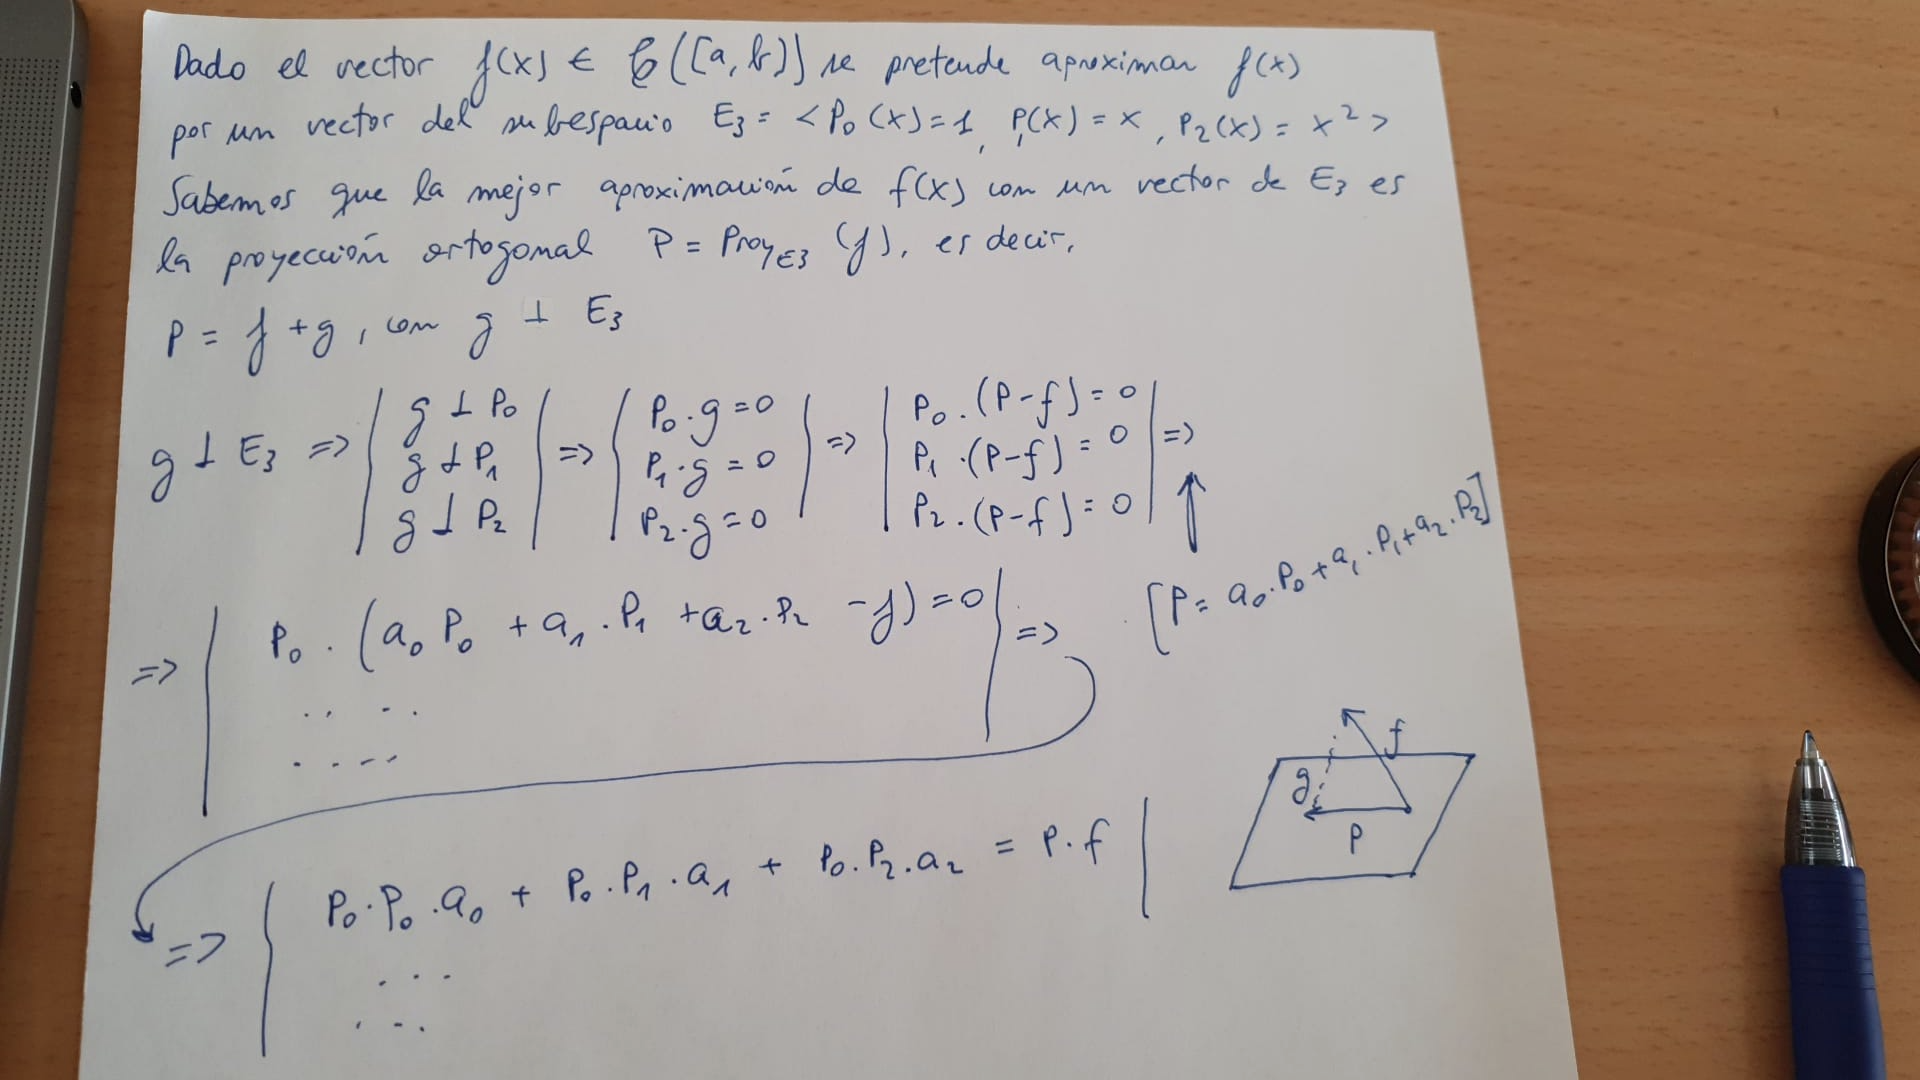 Dado el vector f(x) ∈ C([a,b]) se pretende aproximar f(x)
por un vector del subespacio E₃ = <P₀(x)=1, P₁(x)=x, P₂(x)=x²>
Sabemos que la mejor aproximación de f(x) con un vector de E₃ es
la proyección ortogonal P = Proy_E₃ (f), es decir,
P = f + g, con g ⊥ E₃
g ⊥ E₃ => | g ⊥ P₀ | => | P₀·g=0 | => | P₀·(P-f)=0 | =>
g ⊥ P₁ | P₁·g=0 | P₁·(P-f)=0
g ⊥ P₂ | P₂·g=0 | P₂·(P-f)=0
[P = a₀·P₀+a₁·P₁+a₂·P₂]
=> | P₀·(a₀P₀ + a₁·P₁ + a₂·P₂ - f)=0 | =>
.. ..
....
=> | P₀·P₀·a₀ + P₀·P₁·a₁ + P₀·P₂·a₂ = P·f |
...
...
f
g
P